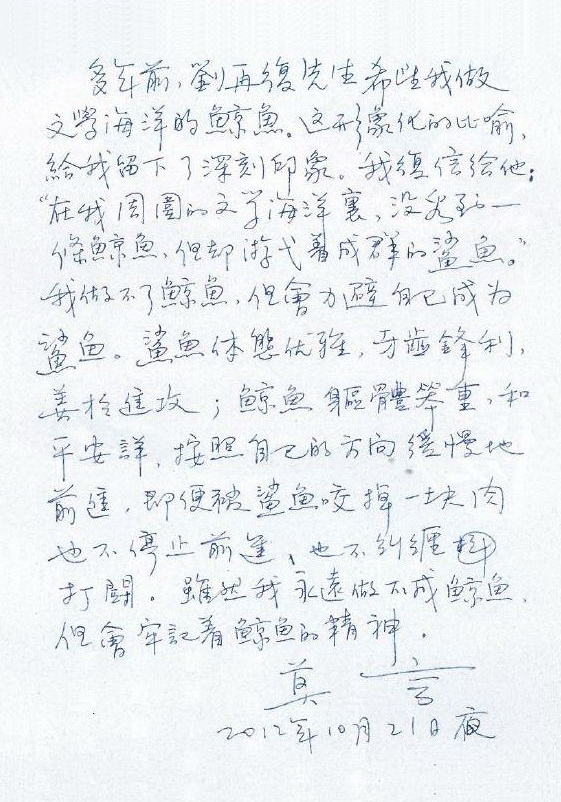 多年前，劉再復先生希望我做
文學海洋的鯨魚。这形象化的比喻，
給我留下了深刻印象。我復信给他：
“在我周围的文学海洋裏，没看到一
條鯨魚，但却游弋着成群的鯊魚。”
我做不了鯨魚，但會力避自己成为
鯊鱼。鯊魚体態优雅，牙齒鋒利，
善於進攻；鯨魚軀體笨重，和
平安詳，按照自己的方向緩慢地
前進，即便被鯊魚咬掉一块肉
也不停止前進、也不糾纏
打鬪。雖然我永遠做不成鯨魚，
但會牢記着鯨魚的精神。
莫言
2012年10月21日夜